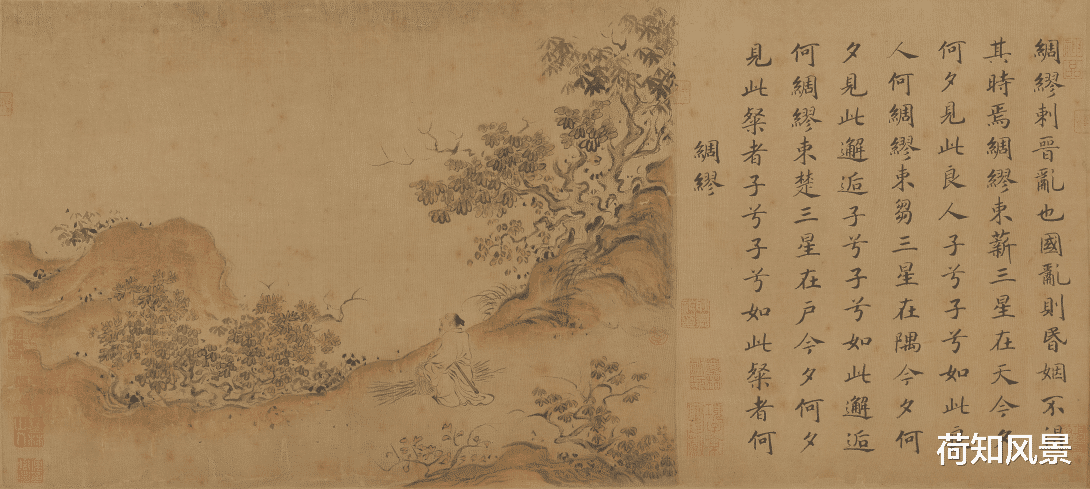 綢繆刺晉亂也國亂則昬姻不
其時焉綢繆束薪三星在天今夕
何夕見此良人子兮子兮如此良
人何綢繆束芻三星在隅今夕何
夕見此邂逅子兮子兮如此邂逅
何綢繆束楚三星在戶今夕何夕
見此粲者子兮子兮如此粲者何
綢繆
荷知风景